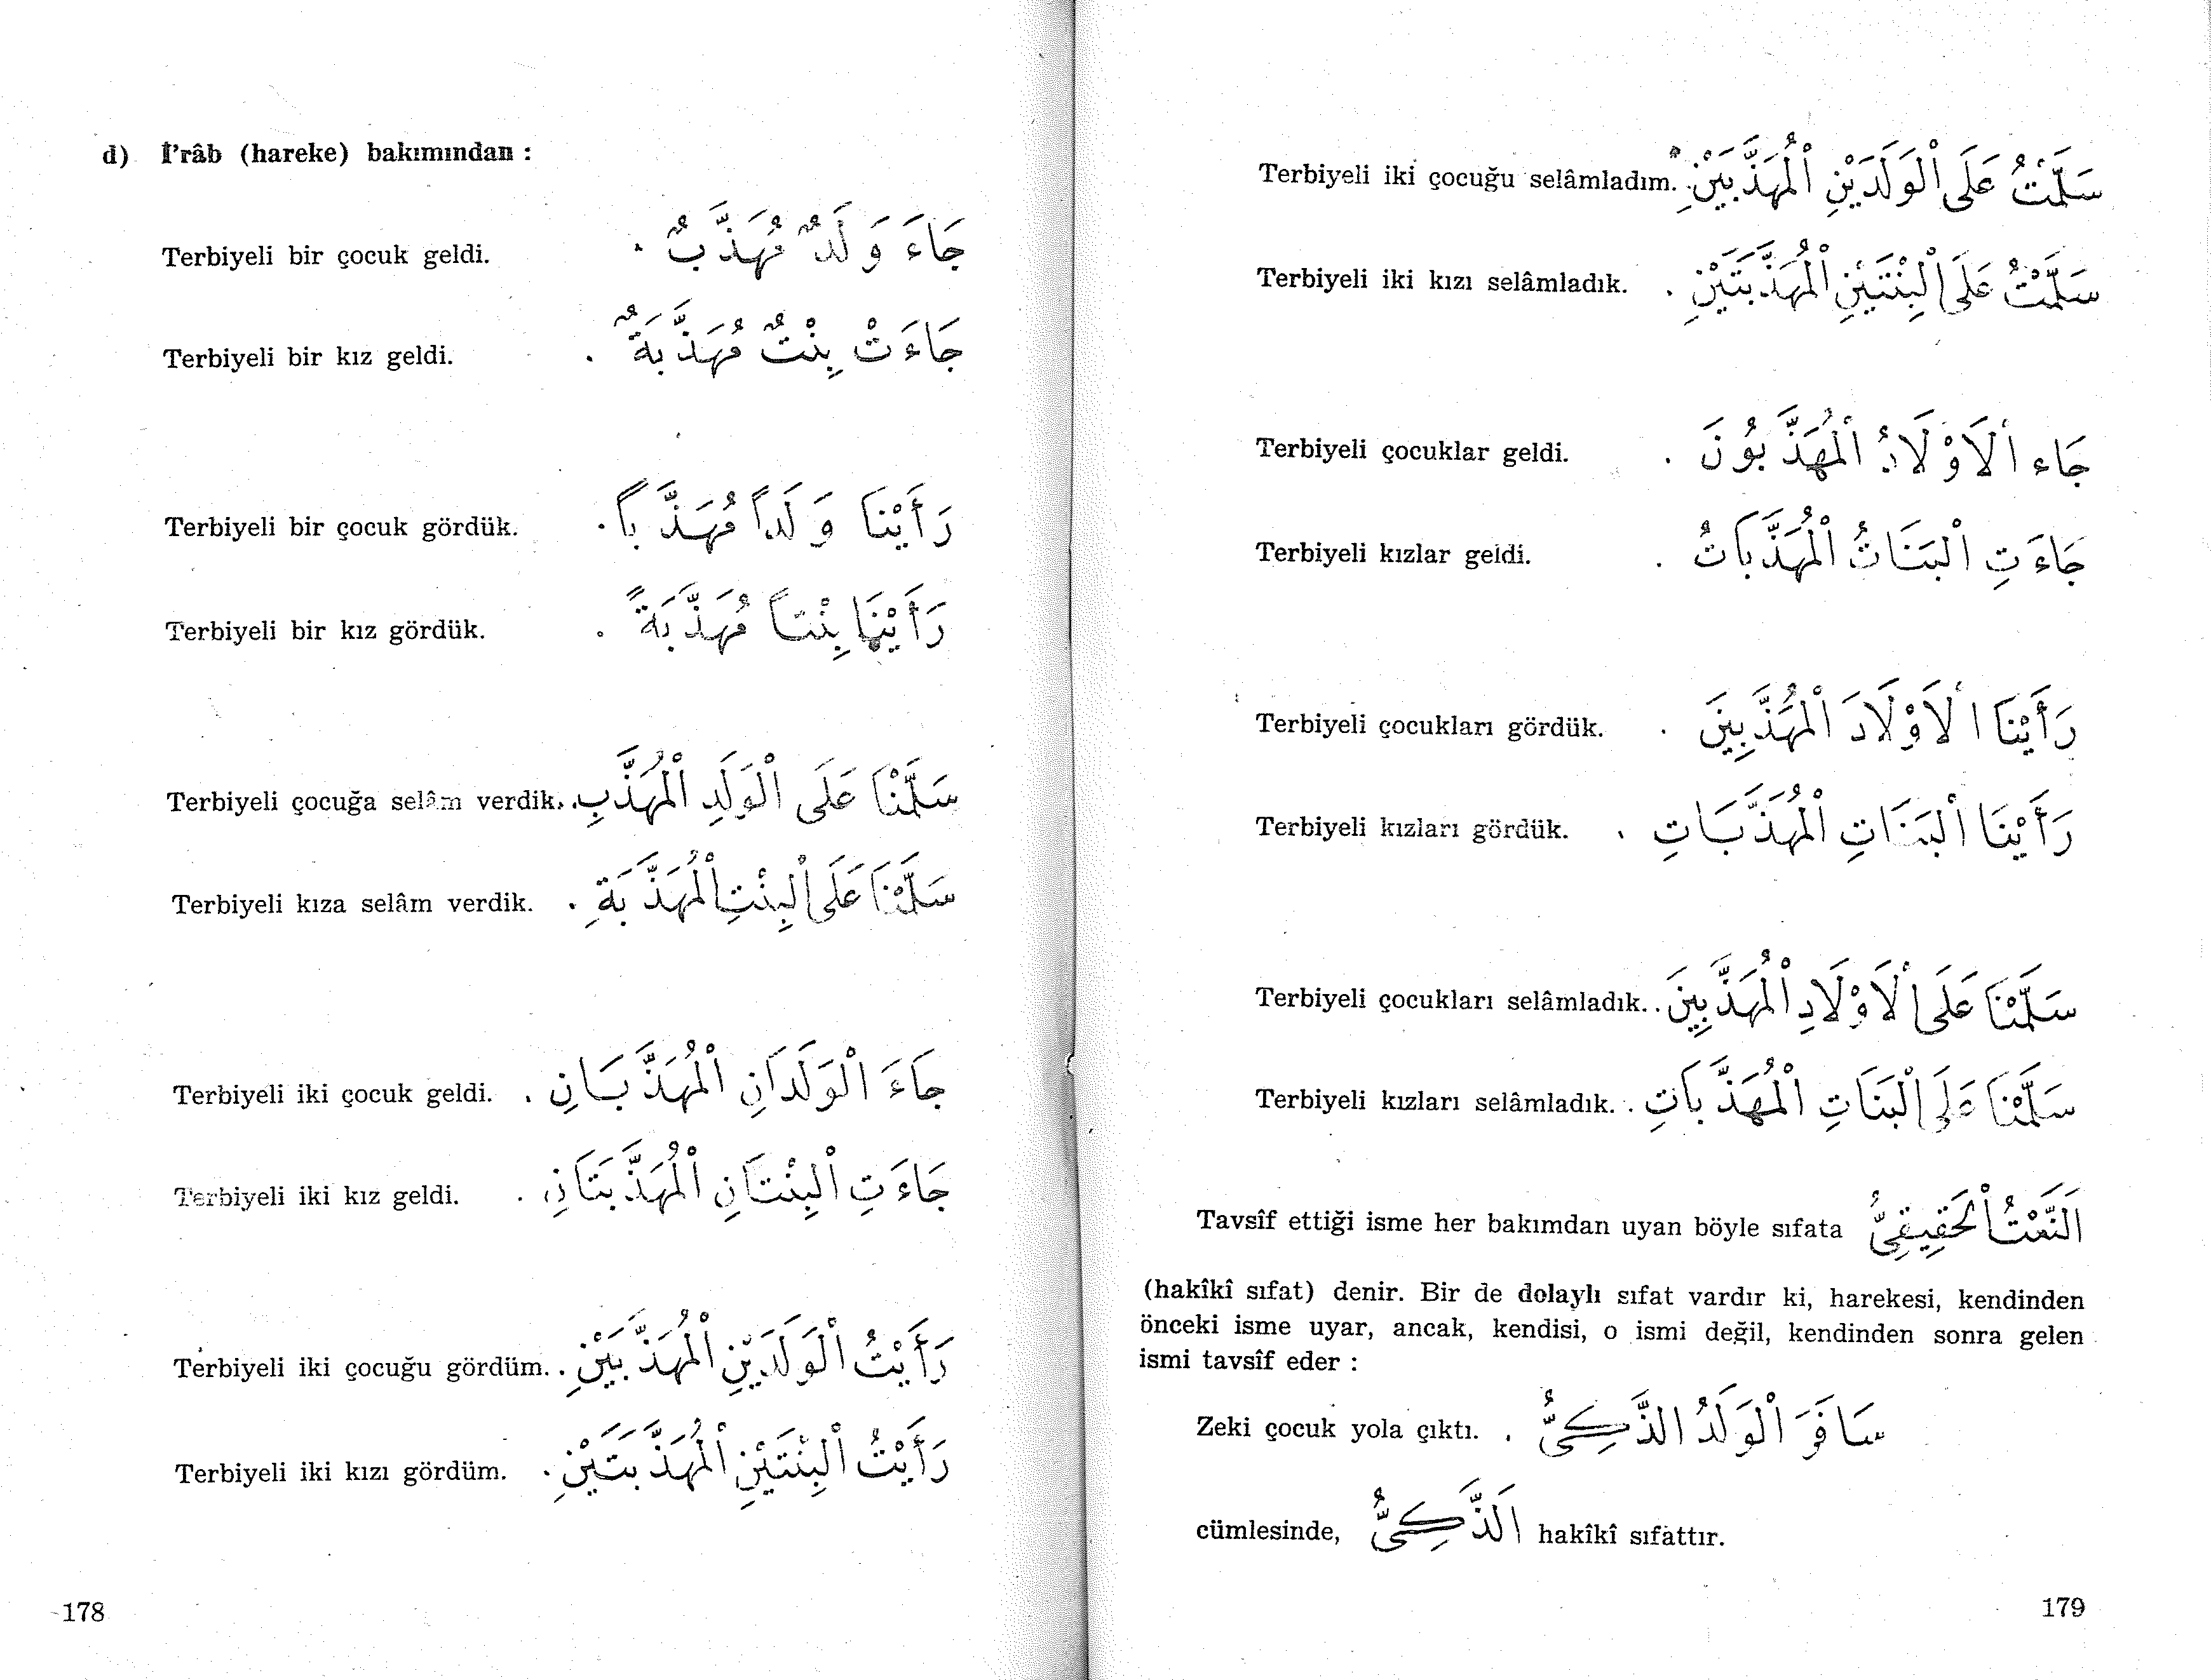 d) İ'râb (hareke) bakımından :
Terbiyeli bir çocuk geldi. جَاءَ وَلَدٌ مُهَذَّبٌ .
Terbiyeli bir kız geldi. جَاءَتْ بِنْتٌ مُهَذَّبَةٌ .
Terbiyeli bir çocuk gördük. رَأَيْنَا وَلَداً مُهَذَّباً .
Terbiyeli bir kız gördük. رَأَيْنَا بِنْتاً مُهَذَّبَةً .
Terbiyeli çocuğa selâm verdik. سَلَّمْنَا عَلَى الْوَلَدِ الْمُهَذَّبِ .
Terbiyeli kıza selâm verdik. سَلَّمْنَا عَلَى الْبِنْتِ الْمُهَذَّبَةِ .
Terbiyeli iki çocuk geldi. جَاءَ الْوَلَدَانِ الْمُهَذَّبَانِ .
Terbiyeli iki kız geldi. جَاءَتِ الْبِنْتَانِ الْمُهَذَّبَتَانِ .
Terbiyeli iki çocuğu gördüm. رَأَيْتُ الْوَلَدَيْنِ الْمُهَذَّبَيْنِ .
Terbiyeli iki kızı gördüm. رَأَيْتُ الْبِنْتَيْنِ الْمُهَذَّبَتَيْنِ .
178
Terbiyeli iki çocuğu selâmladım. سَلَّمْتُ عَلَى الْوَلَدَيْنِ الْمُهَذَّبَيْنِ .
Terbiyeli iki kızı selâmladık. سَلَّمْتُ عَلَى الْبِنْتَيْنِ الْمُهَذَّبَتَيْنِ .
Terbiyeli çocuklar geldi. جَاء الْاَوْلَادُ الْمُهَذَّبُونَ .
Terbiyeli kızlar geldi. جَاءَتِ الْبَنَاتُ الْمُهَذَّبَاتُ .
Terbiyeli çocukları gördük. رَأَيْنَا الْاَوْلَادَ الْمُهَذَّبِينَ .
Terbiyeli kızları gördük. رَأَيْنَا الْبَنَاتِ الْمُهَذَّبَاتِ .
Terbiyeli çocukları selâmladık. سَلَّمْنَا عَلَى الْاَوْلَادِ الْمُهَذَّبِينَ .
Terbiyeli kızları selâmladık. سَلَّمْنَا عَلَى الْبَنَاتِ الْمُهَذَّبَاتِ .
Tavsîf ettiği isme her bakımdan uyan böyle sıfata اَلنَّعْتُ الْحَقِيقِيُّ
(hakîkî sıfat) denir. Bir de dolaylı sıfat vardır ki, harekesi, kendinden
önceki isme uyar, ancak, kendisi, o ismi değil, kendinden sonra gelen
ismi tavsîf eder :
Zeki çocuk yola çıktı. سَافَرَ الْوَلَدُ الذَّكِيُّ .
cümlesinde, اَلذَّكِيُّ hakîkî sıfattır.
179